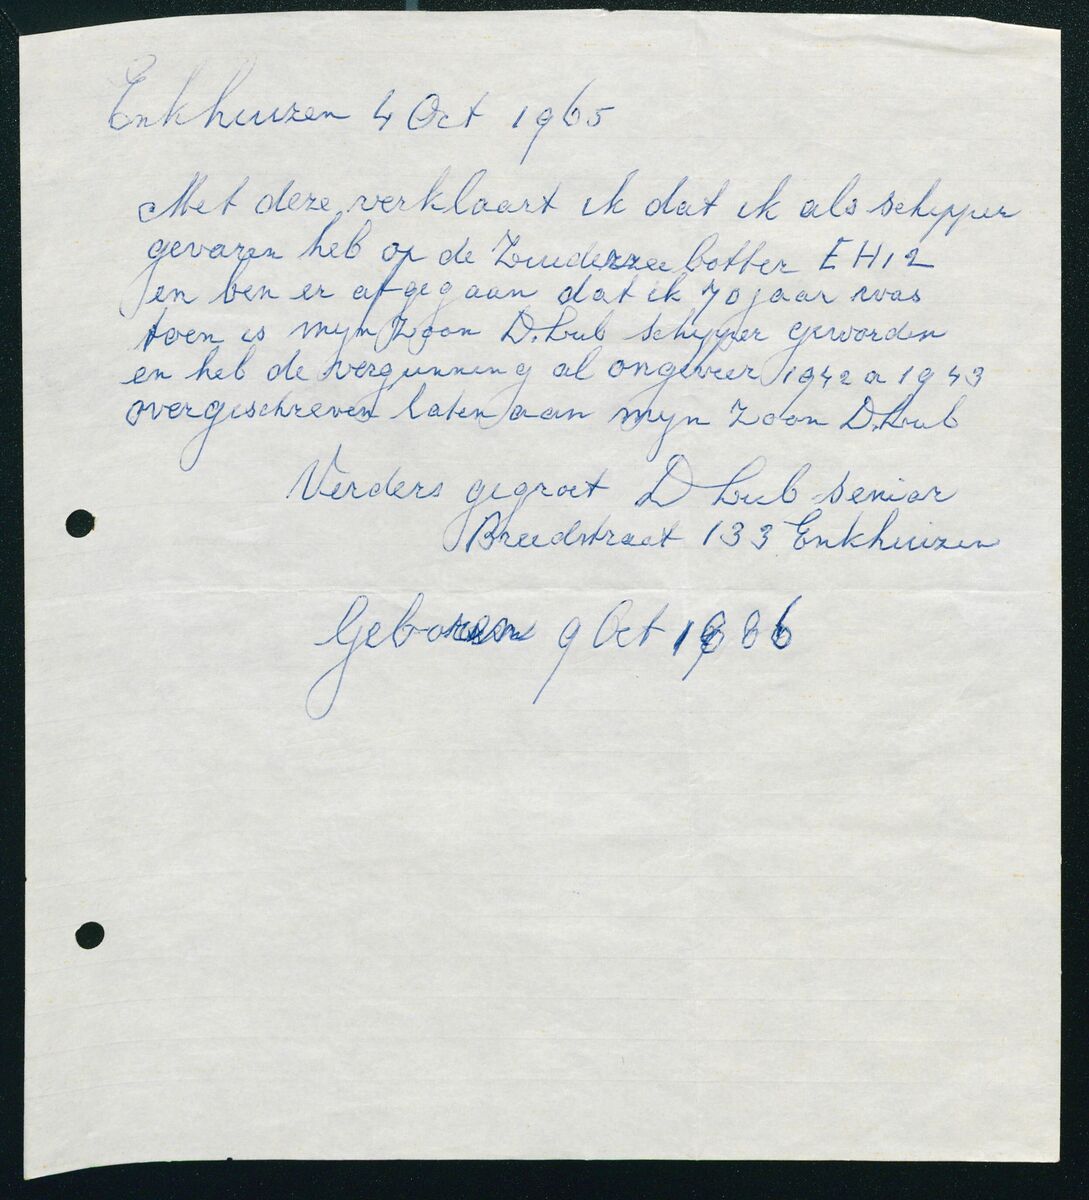 Enkhuizen 4 Oct 1965
Met deze verklaart ik dat ik als schipper
gevaren heb op de Zuiderzee botter EH12
en ben er afgegaan dat ik 70 jaar was
toen is mijn Zoon D. Lub schipper geworden
en heb de vergunning al ongeveer 1942 a 1943
overgeschreven laten aan mijn Zoon D. Lub
Verders gegroet D Lub senior
Breedstraat 133 Enkhuizen
Geboren 9 Oct 1886